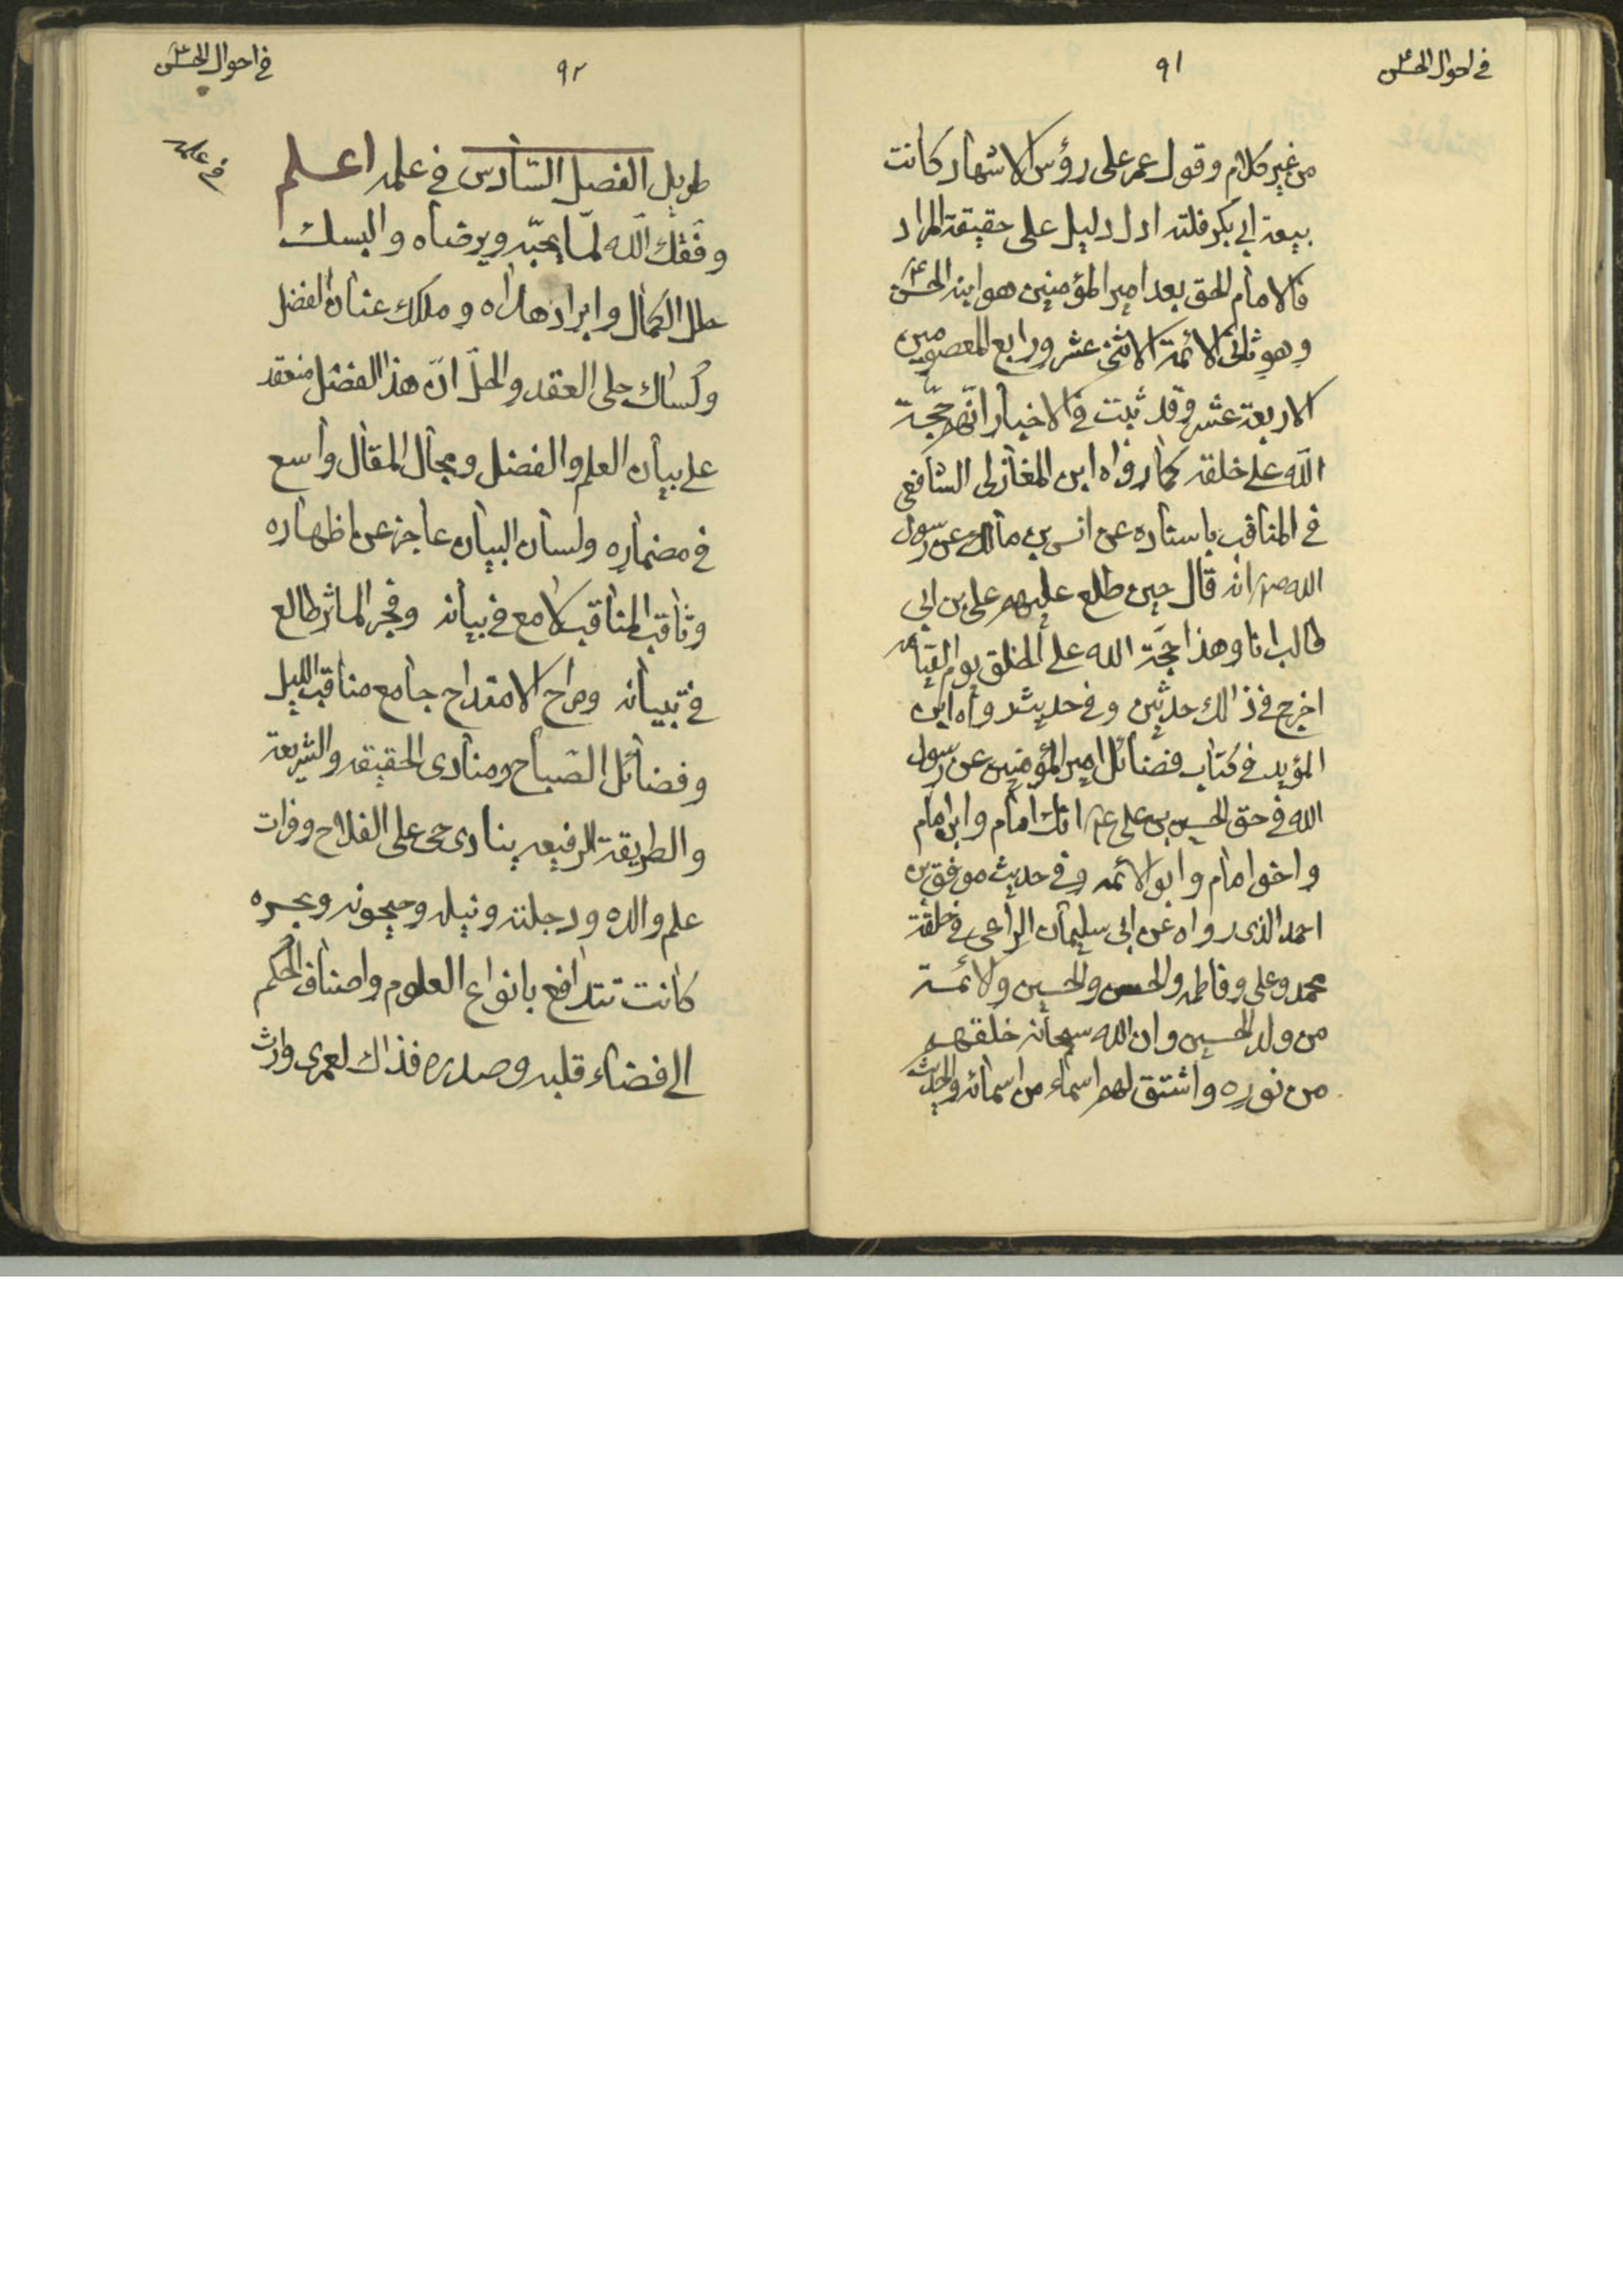 في احوال الحسن ع
٩١
من غير كلام وقول عمر على رؤس الاشهاد كانت
بيعة ابي بكر فلته ادل دليل على حقيقة المراد
فالامام الحق بعد امير المؤمنين هو ابنه الحسن ع
وهو ثانى الائمة الاثنى عشر ورابع المعصومين
الاربعة عشر وقد ثبت في الاخبار انهم حجّة
الله على خلقه كما رواه ابن المغازلى الشافعى
في المناقب باسناده عن انس بن مالك عن رسول
الله ص انه قال حين طلع عليهم على بن ابى
طالب انا وهذا حجّة الله على الخلق يوم القيامه
اخرج في ذالك حديثين وفي حديث رواه ابن
المؤيد في كتاب فضائل امير المؤمنين عن رسول
الله في حق الحسين بن على ع انك امام وابن امام
واخو امام وابو الائمه وفي حديث موفق بن
احمد الذى رواه عن ابى سليمان الراعى في خلقة
محمد وعلى وفاطمه والحسن والحسين والائمة
من ولد الحسين وان الله سبحانه خلقهم
من نوره واشتق لهم اسماء من اسمائه والحديث
في احوال الحسن ع
٩٢
في علمه
طويل الفصل السّادس في علمه اعلم
وفّقك الله لمّا يحبّه ويرضاه والبسك
حلل الكمال وابراد هداه وملكك عنان الفضل
وكساك حلى العقد والحلّ انّ هذا الفصل منعقد
على بيان العلم والفضل ومجال المقال واسع
في مضماره ولسان البيان عاجز عن اظهاره
وثاقب المناقب لامع في بيانه وفجر الماثر طالع
في تبيانه ومراح الامتداح جامع مناقب الليل
وفضائل الصّباح ومنادى الحقيقه والشريعة
والطريقة الرفيعه ينادى حى على الفلاح وفرات
علم والده ودجلته ونيله وجيحونه وبحره
كانت تتدافع بانواع العلوم واصناف الحكم
الى فضاء قلبه وصدره فذاك لعمرى وارث